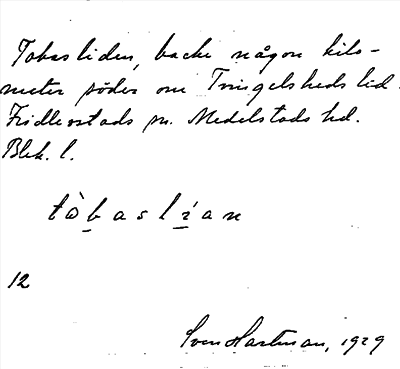 Tobasliden, backe någon kilo-
meter söder om Tvingelsheds lid.
Fridlevstads sn. Medelstads hd.
Blek. l.
tò̱baslí̱an
12
Sven Hartman, 1929